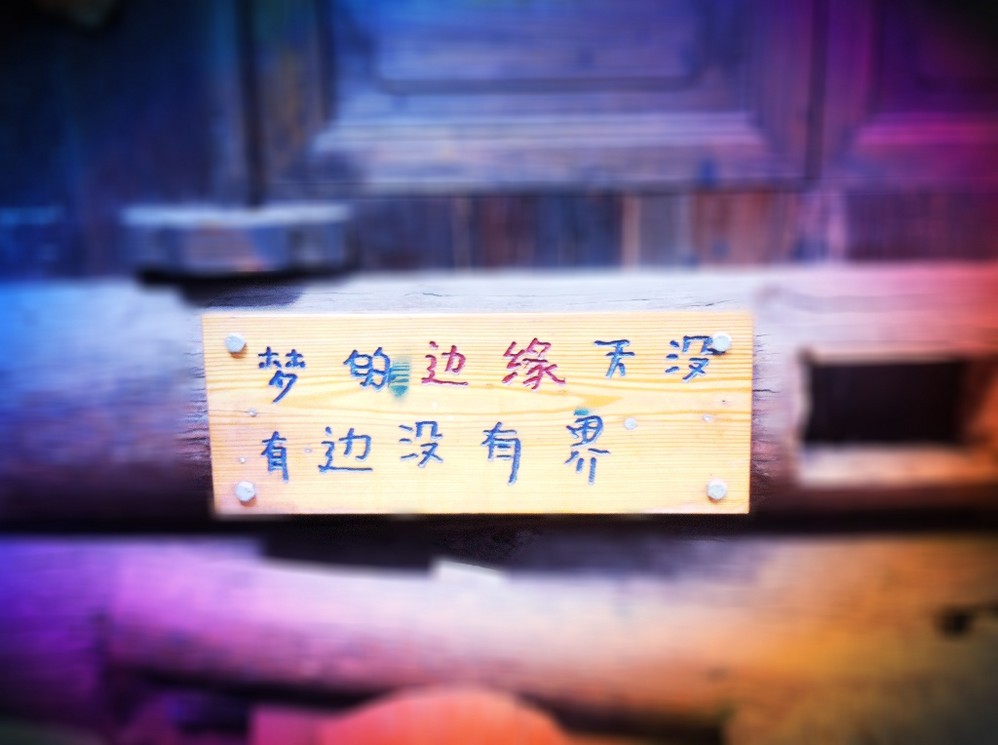 梦的边缘天没
有边没有界